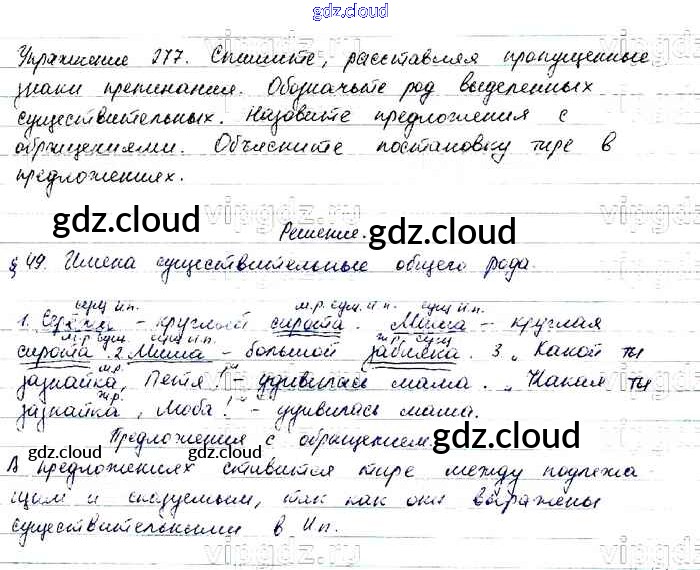 gdz.cloud
Упражнение 277. Спишите, расставляя пропущенные
знаки препинания. Обозначьте род выделенных
существительных. Назовите предложения с
обращениями. Объясните постановку тире в
предложениях.
gdz.cloud gdz.cloud
Решение.
§ 49. Имена существительные общего рода.
сущ И.п. м.р. сущ. И п. сущ И.п.
1. - круглый сирота. Миша - круглая
м.р. сущ. сущ И.п. ж.р. сущ
сирота 2. Миша - большой забияка. 3. „Какой ты
м.р.
зазнайка, Петя!" - удивилась мама. „Какая ты
ж.р.
зазнайка, Люба!" - удивилась мама.
Предложения с обращением. gdz.cloud
gdz.cloud gdz.cloud
В предложениях ставится тире между подлежа-
щим и сказуемым, так как они выражены
существительными в И.п.
vipgdz.ru